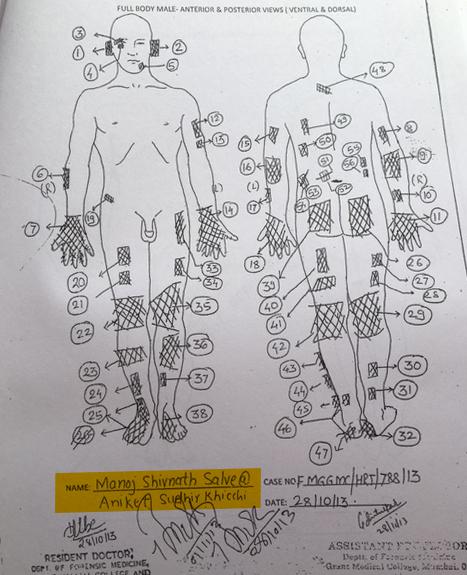 FULL BODY MALE- ANTERIOR & POSTERIOR VIEWS ( VENTRAL & DORSAL)
3
1
2
4
5
48
12
13
15
49
50
8
6
(R)
16
51
55
56
9
(L)
(L)
53
52
(R)
10
17
7
19
14
11
18
20
33
34
39
26
27
28
21
35
40
41
22
29
36
42
23
43
30
24
37
44
31
25
45
38
46
32
47
NAME: Manoj Shivnath Salve@
Aniket Sudhir Khicchi
CASE NO.F.MGGMC/HRT/788/13
DATE: 28/10/13
28/10/13
28/10/13
RESIDENT DOCTOR,
DEPT. OF FORENSIC MEDICINE,
COLLEGE AND
ASSISTANT PROFESSOR
Deptt. of Forensic Medicine
Grant Medical College, Mumbai.